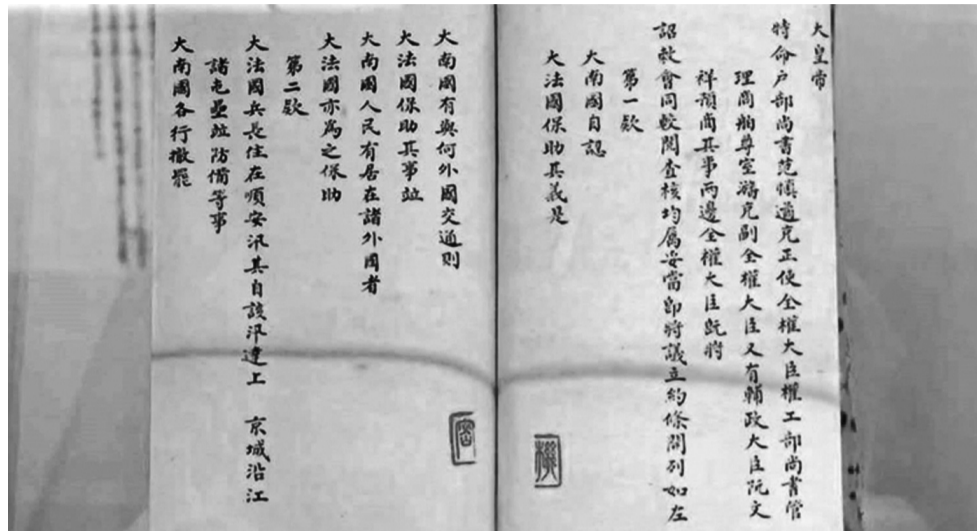 大皇帝
特命戶部尚書范慎遹充正使全權大臣權工部尚書管
理商舶尊室濇充副全權大臣又有輔政大臣阮文
祥預商其事兩邊全權大臣既將
詔敕會同較閱查核均屬妥當卽將議立約條開列如左
第一款
大南國自認
大法國保助其義是
大南國有與何外國交通則
大法國保助其事竝
大南國人民有居在諸外國者
大法國亦爲之保助
第二款
大法國兵長住在順安汛其自該汛達上 京城沿江
諸屯壘竝防備等事
大南國各行撤罷
機
密